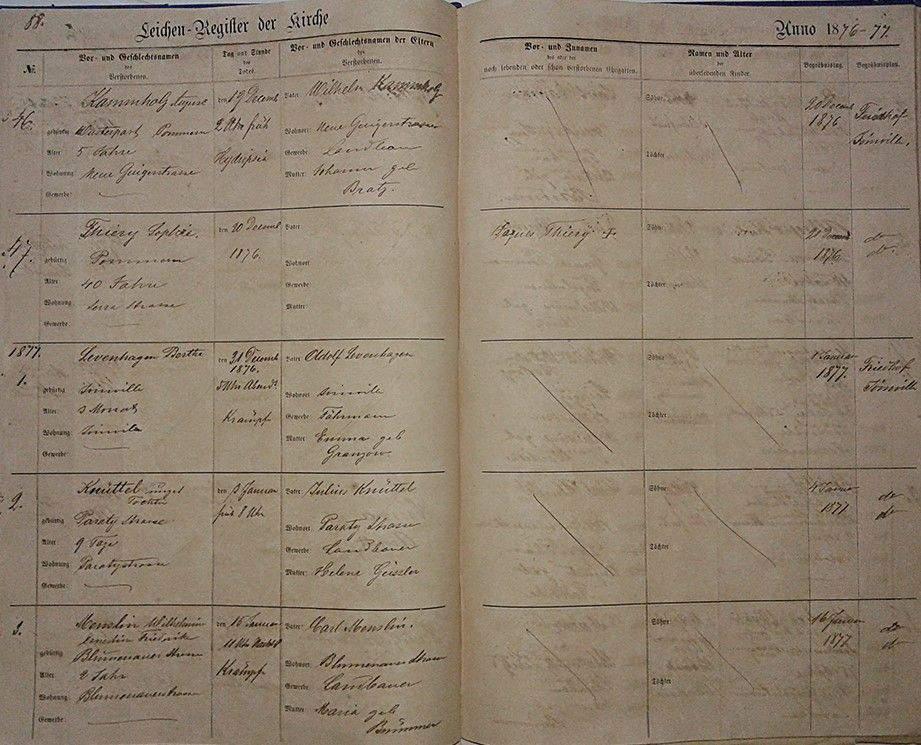 88.
Leichen-Register der Kirche
Anno 1876-77.
№
Vor- und Geschlechtsnamen
des
Verstorbenen.
Tag und Stunde
des
Todes.
Vor- und Geschlechtsnamen der Eltern
des
Verstorbenen.
Vor- und Zunamen
des oder der
noch lebenden oder schon verstorbenen Ehegatten.
Namen und Alter
der
überlebenden Kinder.
Begräbnisstag.
Begräbnissplatz.
46.
Kammholz August
gebürtig
Pommern
Alter
5 Jahre
Wohnung
Neue
Gewerbe:
den 19 Decemb
2 Uhr früh
Vater
Wilhelm Kammholz
Wohnort
Neue
Gewerbe
Landbau
Mutter:
Johanne geb
Bratz.
Söhne
Töchter
20 Decemb
1876
Friedhof
Joinville.
47.
Thiery Sophie.
gebürtig
Pommern
Alter
40 Jahre
Wohnung
Serra Strasse
Gewerbe:
den 20 Decemb
1876.
Vater
Wohnort
Gewerbe:
Mutter:
Thiery †.
Söhne
Töchter
21 Decemb
1876
do
do.
1877.
1.
Levenhagen Bertha
gebürtig
Joinville
Alter:
3 Monat
Wohnung:
Joinville
Gewerbe:
den 31 Decemb
1876.
5 Uhr Abends
Krampf
Vater
Adolf Levenhagen
Wohnort
Joinville
Gewerbe:
Fährmann
Mutter
Emma geb
Granzow.
Söhne
Töchter
1 Januar
1877.
Friedhof
Joinville
2.
Knüttel
Tochter
gebürtig
Paraty Strasse
Alter
9 Tage
Wohnung
Paratystrasse
Gewerbe:
den 3 Januar
früh 8 Uhr
Vater:
Julius Knüttel
Wohnort
Paraty Strasse
Gewerbe:
Landbauer
Mutter:
Helene Geissler
Söhne
Töchter
4 Januar
1877
do
do
3.
Menslin Wilhelmine
Friedrike
gebürtig
Blumenauer Strasse
Alter
2 Jahr
Wohnung:
Blumenauerstrasse
Gewerbe:
den 15 Januar
11 Uhr
Krämpf
Vater:
Carl Menslin.
Wohnort
Blumenauer Strasse
Gewerbe:
Landbauer
Mutter
Maria geb
Brümmer
Söhne
Töchter
16 Januar
1877
do
do